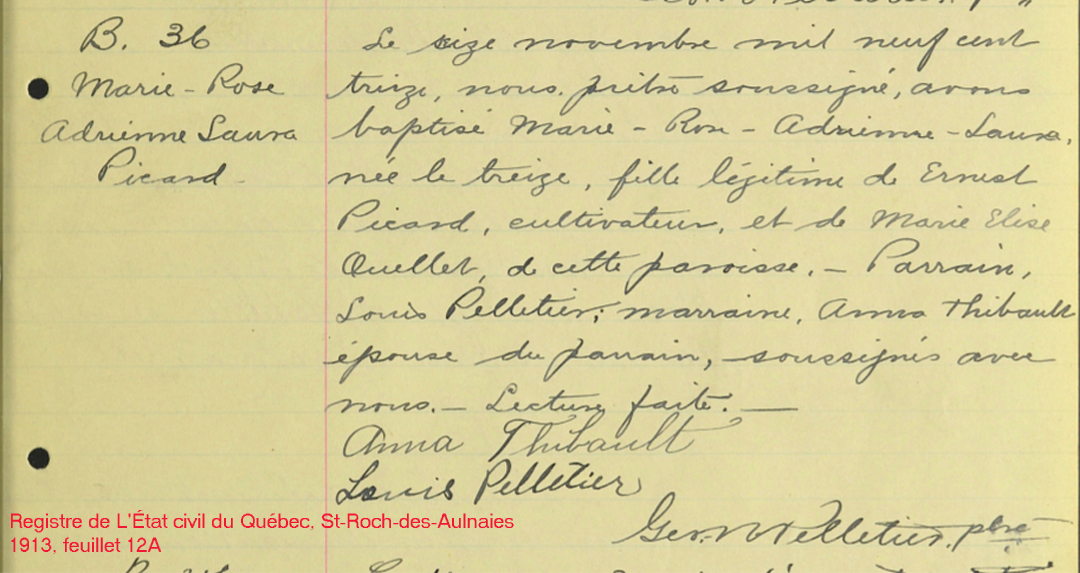 B. 36
Marie-Rose
Adrienne Laura
Picard
Le seize novembre mil neuf cent
treize, nous prêtre soussigné, avons
baptisé Marie-Rose-Adrienne-Laura,
née le treize, fille légitime de Ernest
Picard, cultivateur, et de Marie Elise
Ouellet, de cette paroisse.- Parrain,
Louis Pelletier; marraine, Anna Thibault
épouse du parrain, soussignés avec
nous.- Lecture faite.-
Anna Thibault
Louis Pelletier
Pelletier, ptre
Registre de L'État civil du Québec, St-Roch-des-Aulnaies
1913, feuillet 12A